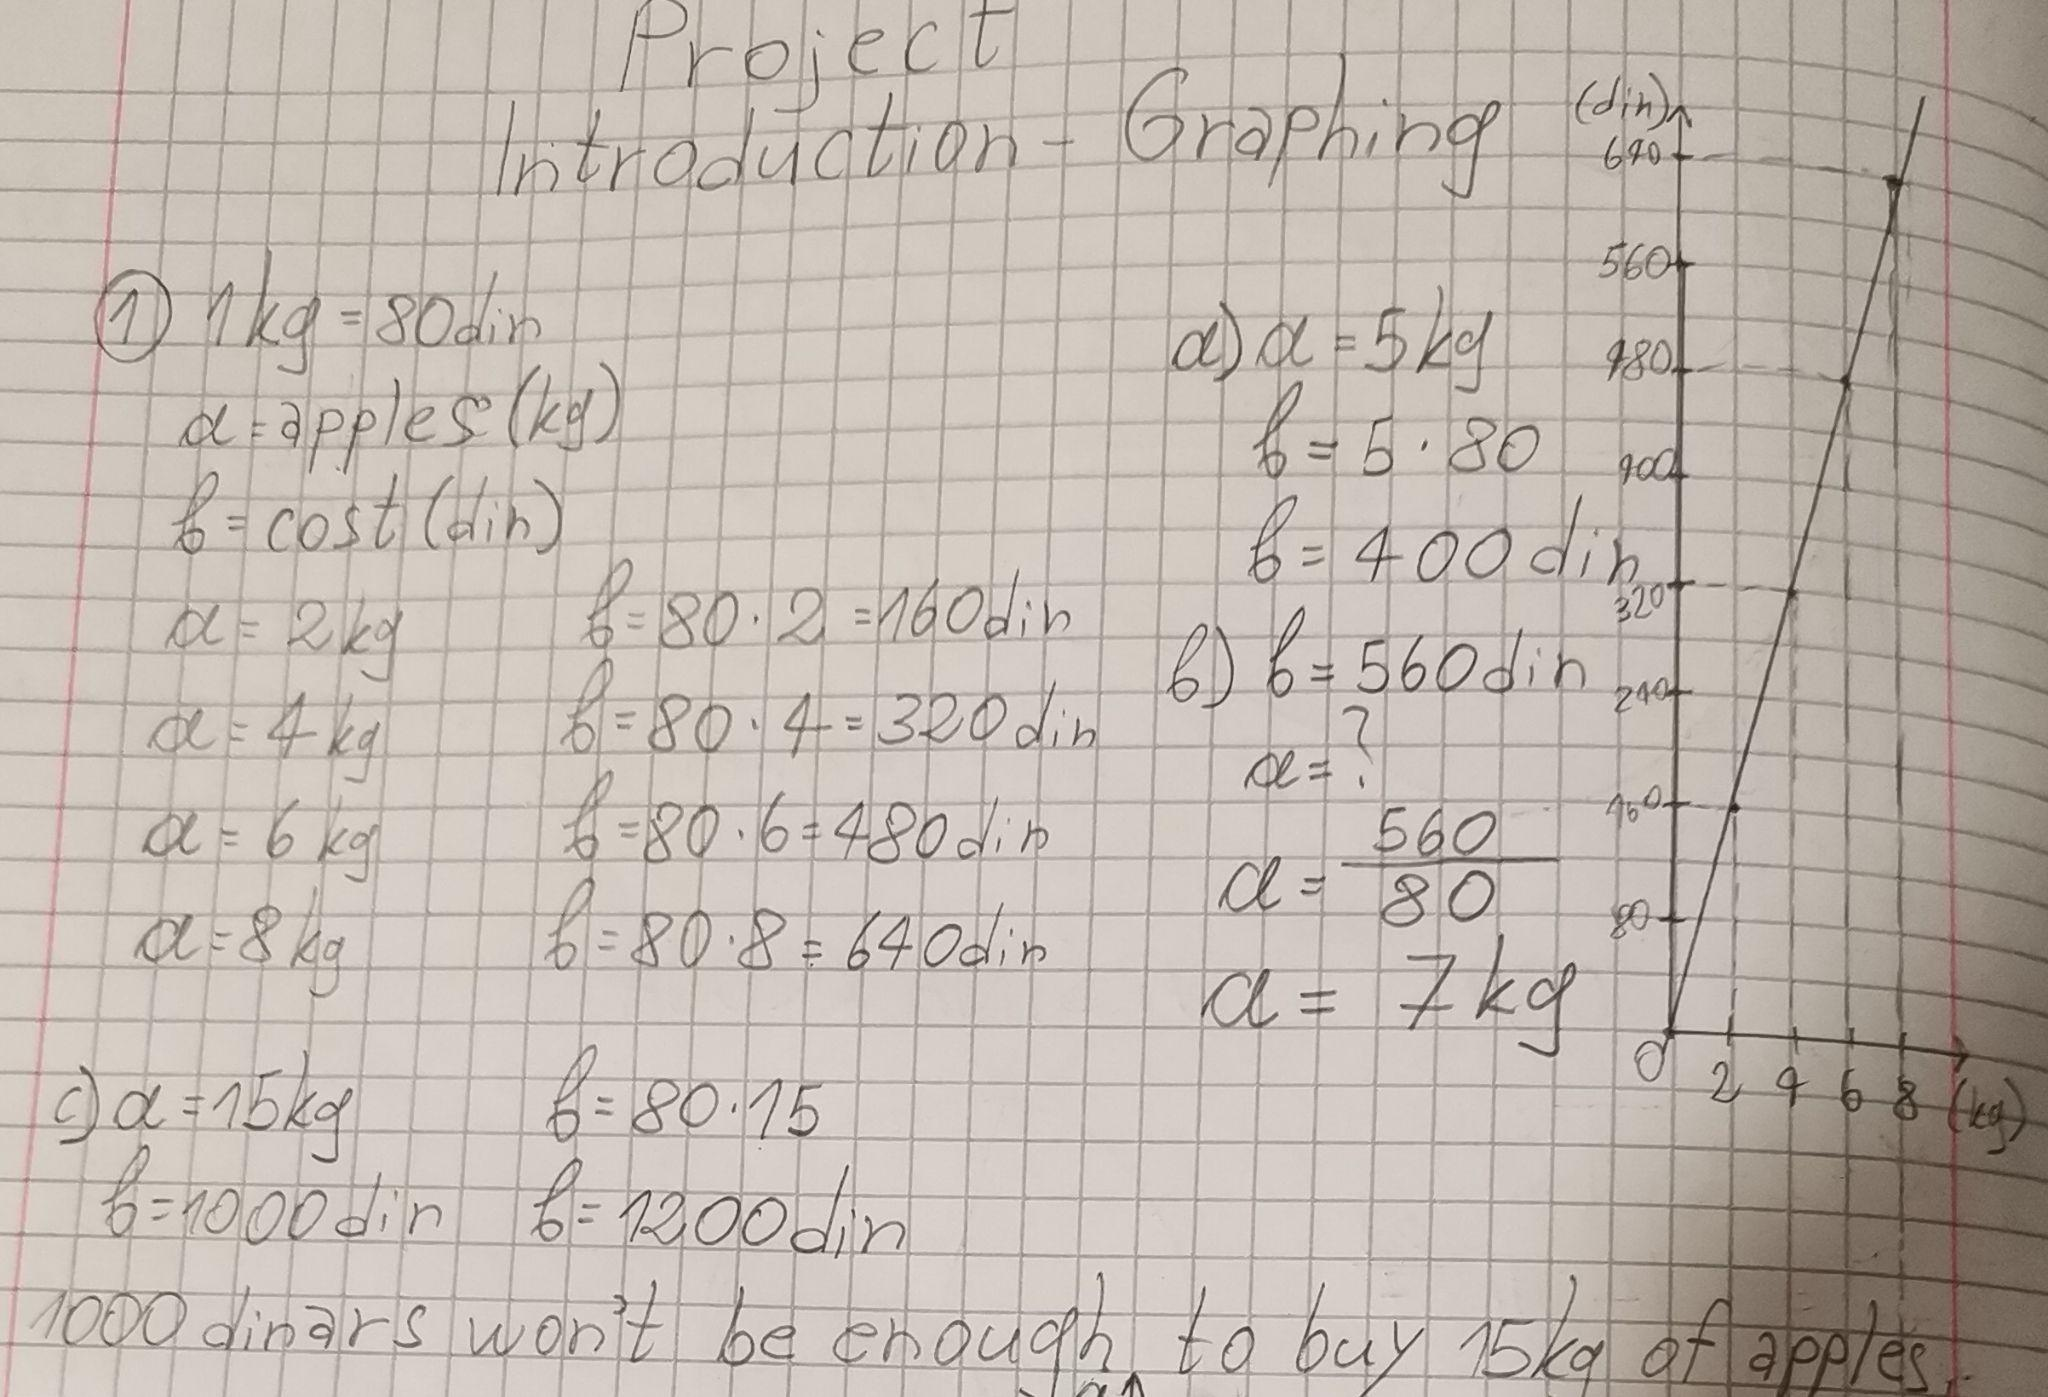 Project
Introduction - Graphing
1) 1kg = 80din
a = apples (kg)
b = cost (din)
a = 2kg b = 80 · 2 = 160din
a = 4kg b = 80 · 4 = 320din
a = 6kg b = 80 · 6 = 480din
a = 8kg b = 80 · 8 = 640din
a) a = 5kg
b = 5 · 80
b = 400din
b) b = 560din
a = ?
a = 560/80
a = 7kg
(din)
640
560
480
400
320
240
160
80
0 2 4 6 8 (kg)
c) a = 15kg b = 80 · 15
b = 1000din b = 1200din
1000 dinars won't be enough to buy 15kg of apples.